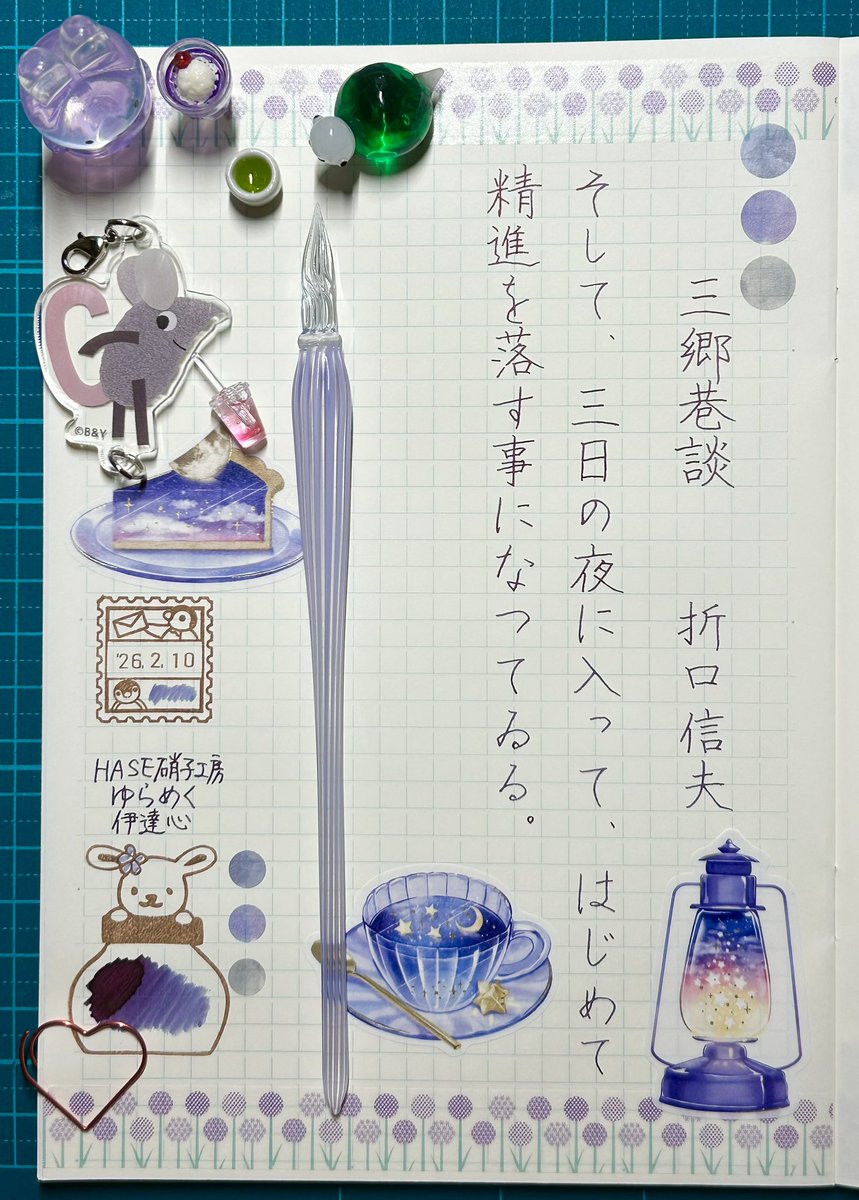 三郷巷談 折口信夫
そして、三日の夜に入って、はじめて
精進を落す事になつてゐる。
C
©B&Y
'26.2.10
HASE硝子工房
ゆらめく
伊達心